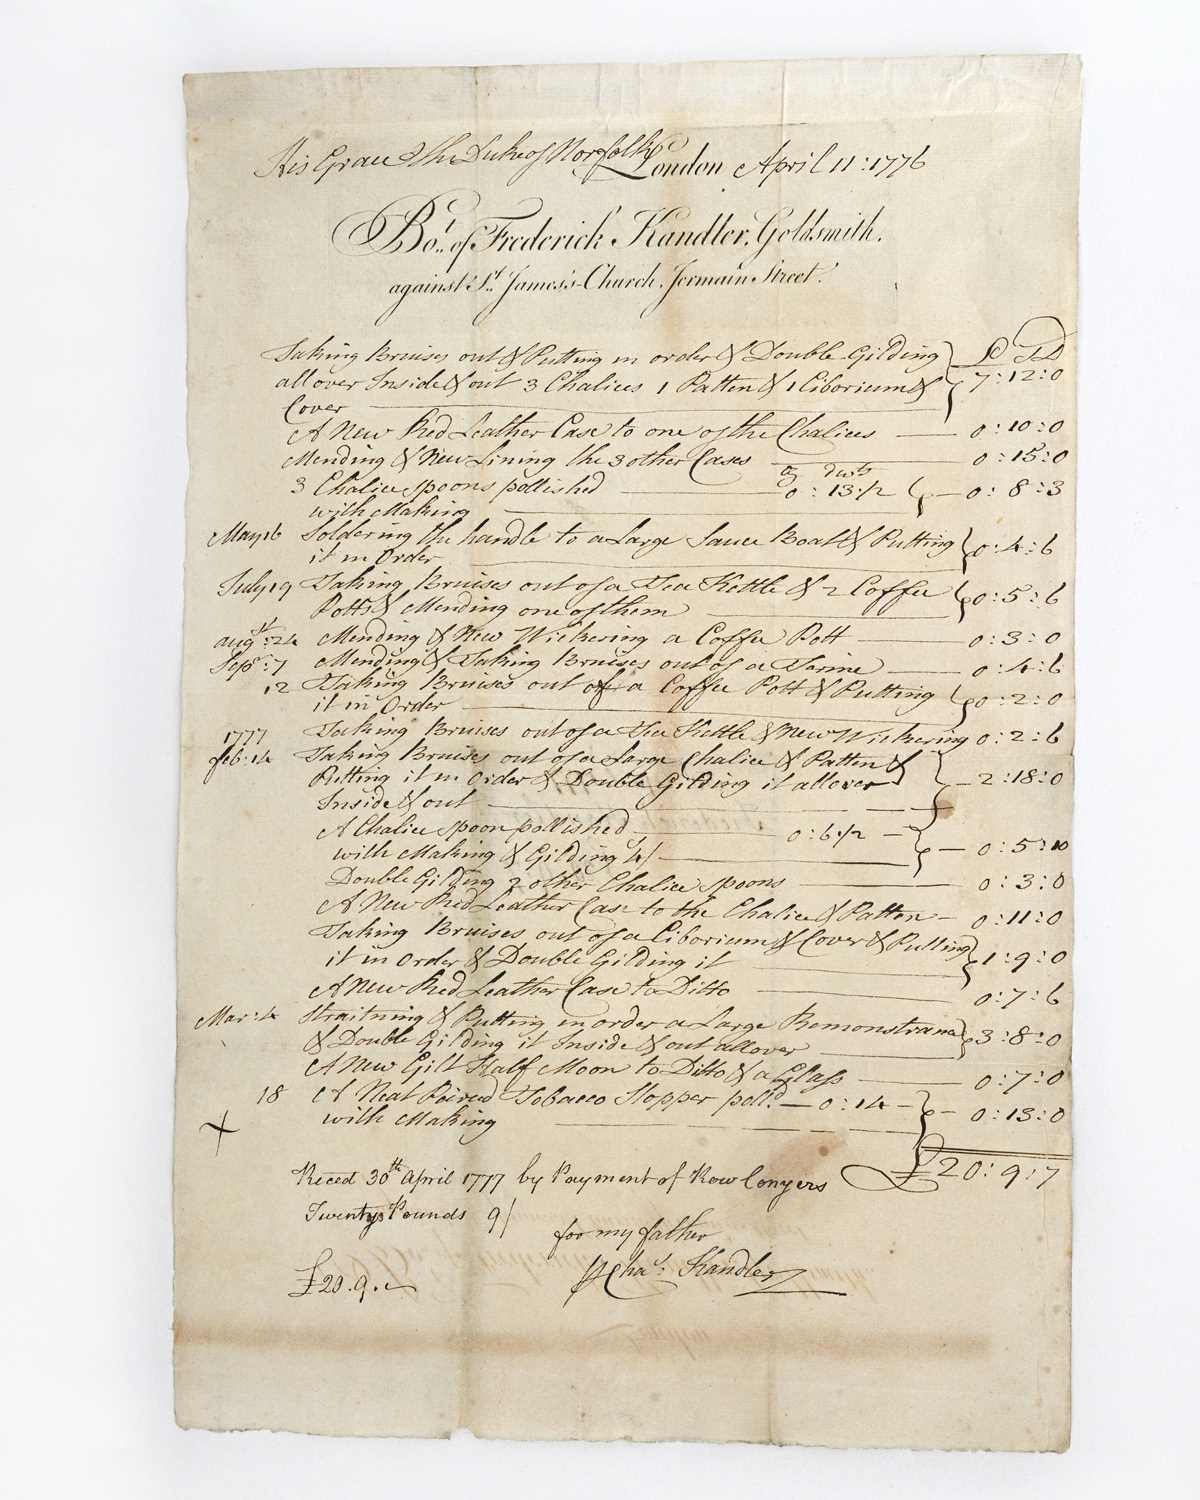 His Grace the Duke of Norfolk London April 11: 1776
Bot. of Frederick Kandler, Goldsmith.
against St. James's-Church, Jermain Street.
Taking Bruises out & Putting in order & Double Gilding £ S D
all over Inside & out 3 Chalices 1 Patten & 1 Ciborium & 7:12:0
Cover
A New Red Leather Case to one of the Chalices 0:10:0
Mending & New Lining the 3 other Cases 0:15:0
oz dwts
3 Chalice spoons pollished 0:13:1/2 0:8:3
with Making
May 16 Soldering the handle to a Large Sauce Boatt & Putting 0:4:6
it in Order
July 19 Taking Bruises out of a Tea Kettle & 2 Coffee 0:5:6
Potts & Mending one of them
augst: 24 Mending & New Wickering a Coffee Pott 0:3:0
Sepr: 7 Mending & Taking Bruises out of a Turine 0:4:6
12 Taking Bruises out of a Coffee Pott & Putting 0:2:0
it in Order
1777 Taking Bruises out of a Tea Kettle & New Wickering 0:2:6
feb: 14 Taking Bruises out of a Large Chalice & Patten & 2:18:0
Putting it in Order & Double Gilding it all over
Inside & out
A Chalice spoon pollished 0:6:1/2
with Making & Gilding 4/ 0:5:10
Double Gilding 2 other Chalice spoons 0:3:0
A New Red Leather Case to the Chalice & Patten 0:11:0
Taking Bruises out of a Ciborium & Cover & Putting
it in Order & Double Gilding it 1:9:0
A New Red Leather Case to Ditto 0:7:6
Mar: 4 Straitning & Putting in order a Large Remonstrance 3:8:0
& Double Gilding it Inside & out all over
A New Gilt Half Moon to Ditto & a Glass 0:7:0
18 A Neat Tobacco Stopper polld 0:14 0:13:0
with Making
X
£20:9:7
Receed 30th April 1777 by Payment of Row Conyers
Twenty Pounds 9/
for my father
Chas: Kandler
£20.9.